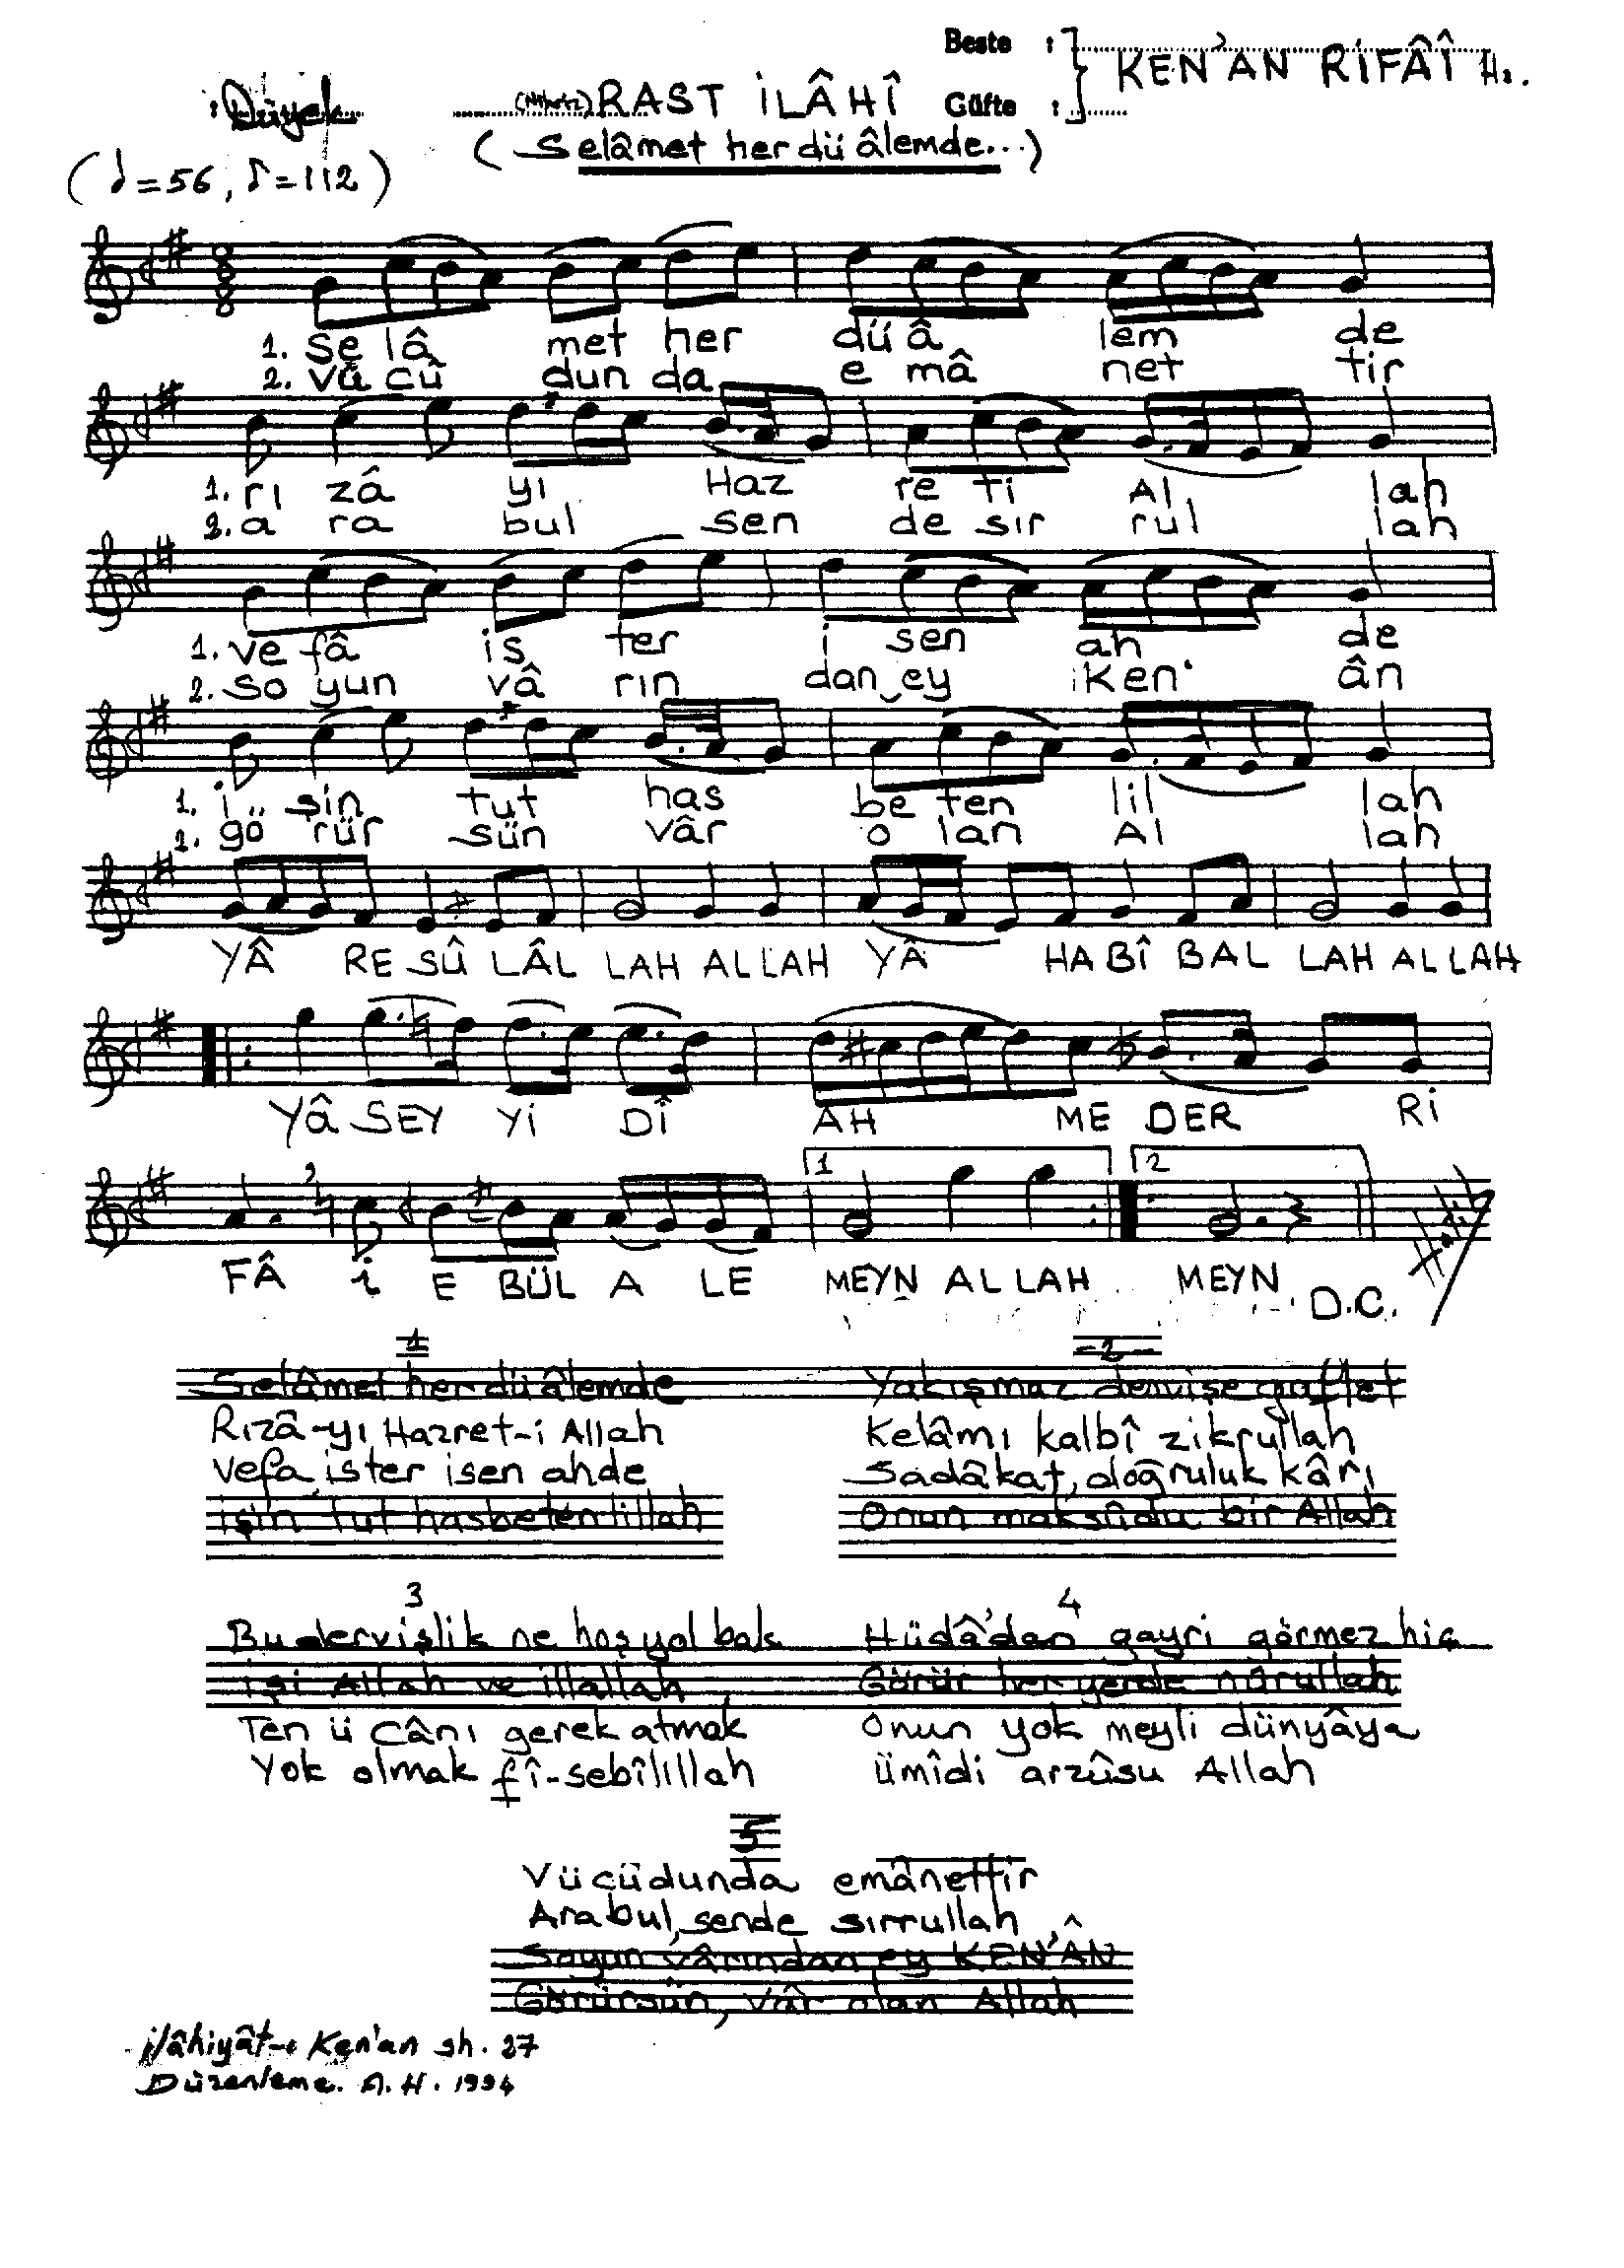 Beste :
KEN'ÂN RİFÂÎ Hz.
: Düyek
RAST İLÂHÎ
Güfte :
(Selâmet her dü âlemde...)
(♩=56, ♪=112)
1. Se lâ met her dü â lem de
2. vü cû dun da e mâ net tir
1. rı zâ yı Haz re ti Al lah
2. a ra bul sen de sır rul lah
1. ve fâ is ter i sen ah de
2. so yun vâ rın dan ey Ken' ân
1. i şin tut has be ten lil lah
2. gö rür sün vâr o lan Al lah
YÂ RE SÛ LÂL LAH ALLAH YÂ HA BÎ BAL LAH ALLAH
YÂ SEY Yİ DÎ AH ME DER Rİ
1 2
FÂ i E BÜL A LE MEYN ALLAH MEYN D.C.
1
Selâmet her dü âlemde
Rızâ-yı Hazret-i Allah
Vefa ister isen ahde
işin tut hasbeten lillah
2
Yakışmaz dervişe gaflet
Kelâmı kalbî zikrullah
Sadâkat, doğruluk kârı
Onun maksûdu bir Allah
3
Bu dervişlik ne hoş yol bak
işi Allah ve illallah
Ten ü cânı gerek atmak
Yok olmak fî-sebîlillah
4
Hüdâ'dan gayri görmez hiç
Görür her yerde nûrullah
Onun yok meyli dünyâya
ümîdi arzûsu Allah
5
Vücüdunda emânettir
Ara bul, sende sırrullah
Soyun vârından ey KEN'ÂN
Görürsün, vâr olan Allah
ilâhiyât-ı Ken'an sh. 27
Düzenleme. A.H. 1994